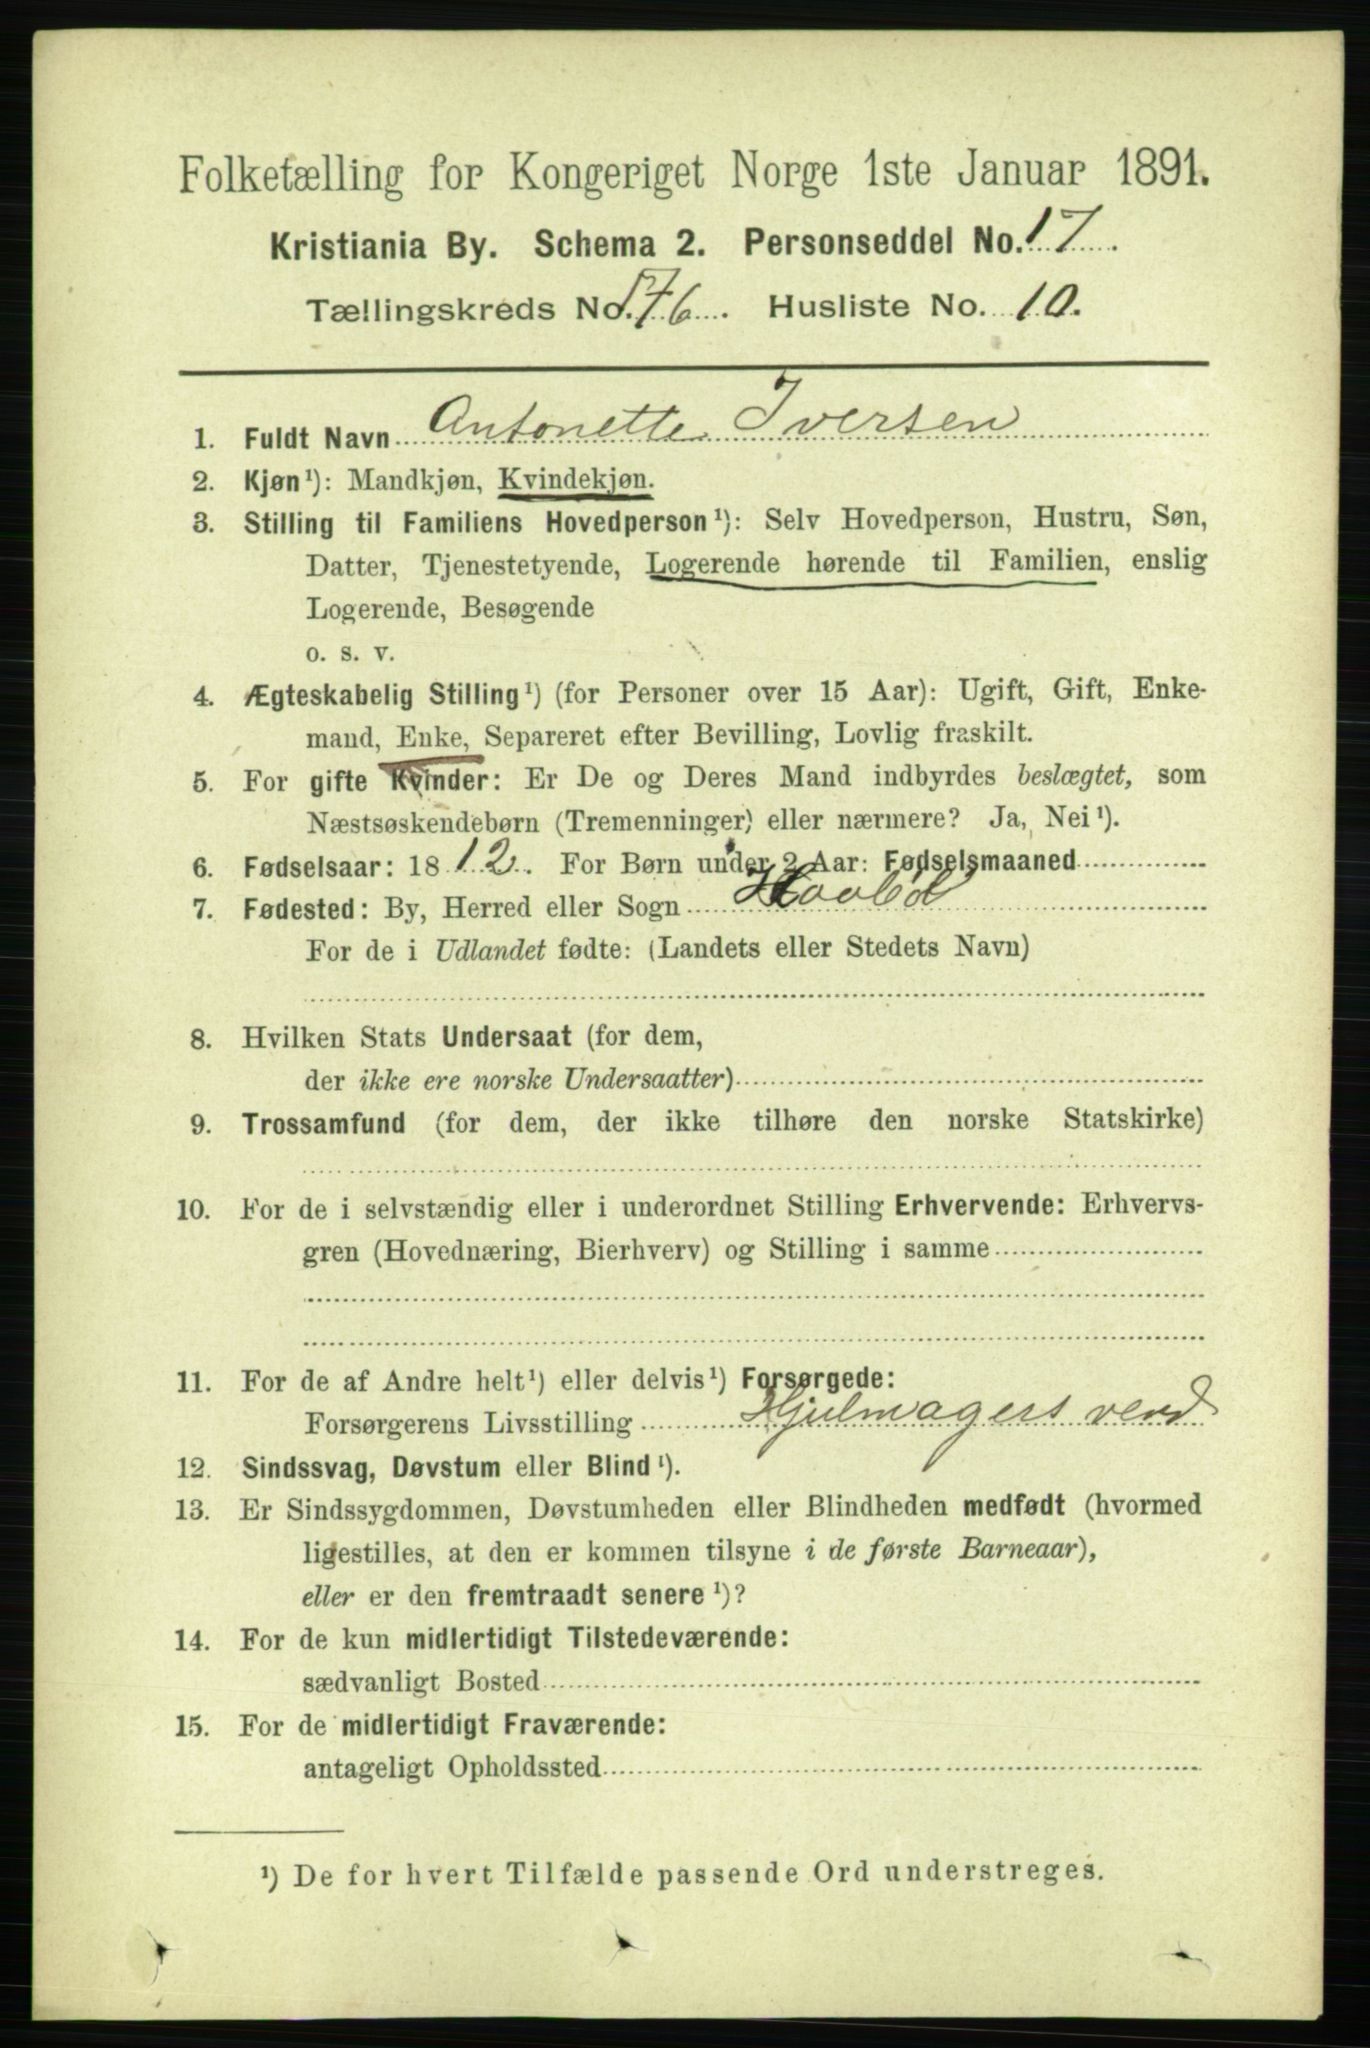 Folketælling for Kongeriget Norge 1ste Januar 1891.
Kristiania By. Schema 2. Personseddel No. 17.
Tællingskreds No. 176. Husliste No. 10.
1. Fuldt Navn Antonette Iversen
2. Kjøn¹): Mandkjøn, Kvindekjøn.
3. Stilling til Familiens Hovedperson¹): Selv Hovedperson, Hustru, Søn,
Datter, Tjenestetyende, Logerende hørende til Familien, enslig
Logerende, Besøgende
o. s. v.
4. Ægteskabelig Stilling¹) (for Personer over 15 Aar): Ugift, Gift, Enke-
mand, Enke, Separeret efter Bevilling, Lovlig fraskilt.
5. For gifte Kvinder: Er De og Deres Mand indbyrdes beslægtet, som
Næstsøskendebørn (Tremenninger) eller nærmere? Ja, Nei¹).
6. Fødselsaar: 1812. For Børn under 2 Aar: Fødselsmaaned
7. Fødested: By, Herred eller Sogn
For de i Udlandet fødte: (Landets eller Stedets Navn)
8. Hvilken Stats Undersaat (for dem,
der ikke ere norske Undersaatter)
9. Trossamfund (for dem, der ikke tilhøre den norske Statskirke)
10. For de i selvstændig eller i underordnet Stilling Erhvervende: Erhvervs-
gren (Hovednæring, Bierhverv) og Stilling i samme
11. For de af Andre helt¹) eller delvis¹) Forsørgede:
Forsørgerens Livsstilling Hjulmagers
12. Sindssvag, Døvstum eller Blind¹).
13. Er Sindssygdommen, Døvstumheden eller Blindheden medfødt (hvormed
ligestilles, at den er kommen tilsyne i de første Barneaar),
eller er den fremtraadt senere¹)?
14. For de kun midlertidigt Tilstedeværende:
sædvanligt Bosted
15. For de midlertidigt Fraværende:
antageligt Opholdssted
¹) De for hvert Tilfælde passende Ord understreges.